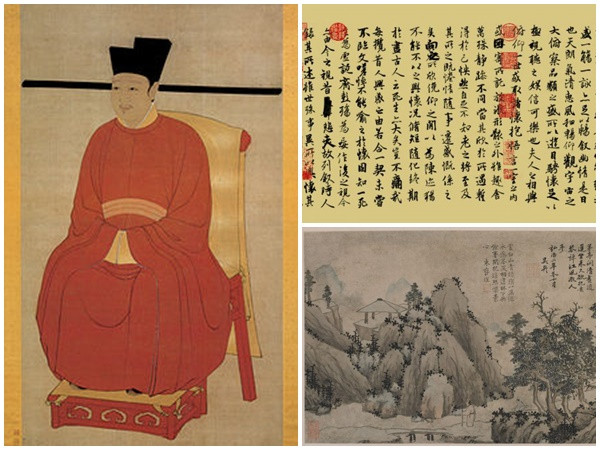 盛一觴一詠亦足以暢敘幽情是日
也天朗氣清惠風和暢仰觀宇宙之
大俯察品類之盛所以遊目騁懷足以
極視聽之娛信可樂也夫人之相與
俯仰一世或取諸懷抱悟言一室之內
或因寄所託放浪形骸之外雖趣舍
萬殊靜躁不同當其欣於所遇暫
得於己怏然自足不知老之將至及
其所之既惓情隨事遷感慨係之
矣向之所欣俛仰之間以為陳迹猶
不能不以之興懷況脩短隨化終期
於盡古人云死生亦大矣豈不痛哉
每攬昔人興感之由若合一契未嘗
不臨文嗟悼不能喻之於懷固知一死
生為虛誕齊彭殤為妄作後之視今
亦由今之視昔悲夫故列敘時人
錄其所述雖世殊事異所以興懷其